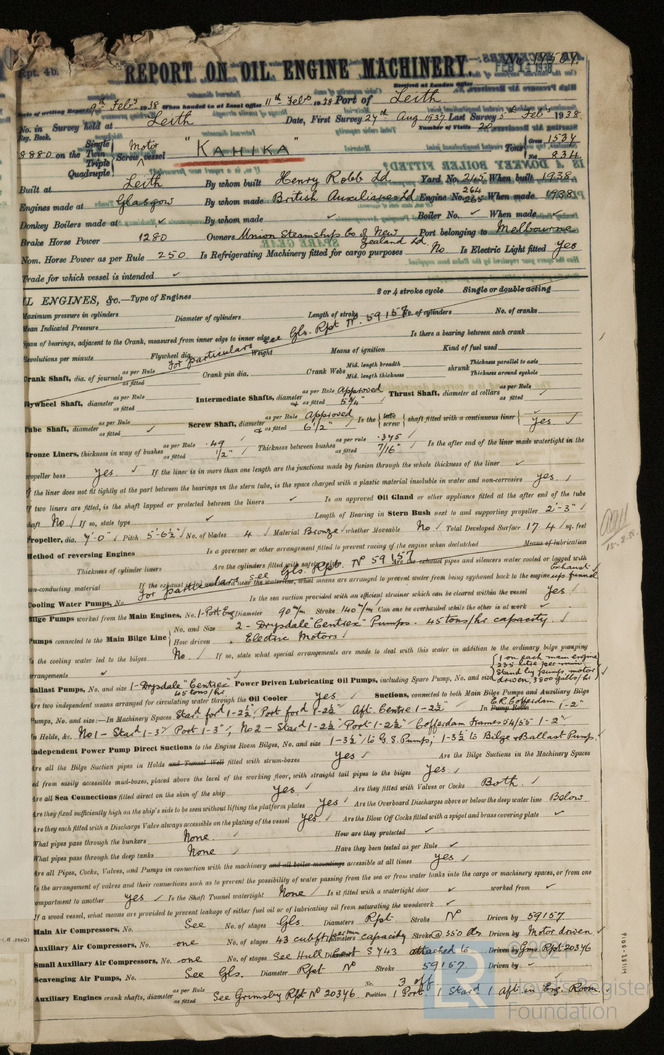 Rpt. 4b.
REPORT ON OIL ENGINE MACHINERY.
Date of writing Report 9th Feby 1938 When handed in at Local Office 11th Feby 1938 Port of Leith
No. in Survey held at Leith Date, First Survey 27th Aug 1937 Last Survey 5th Feby 1938
Reg. Book. Number of Visits
8880 on the Single Twin Triple Quadruple Screw vessel Motor "KAHIKA" Tons Gross 1537 Net 834
Built at Leith By whom built Henry Robb Ld Yard No. 265 When built 1938
Engines made at Glasgow By whom made British Auxiliaries Ld Engine No. 264 265 When made 1938
Donkey Boilers made at ✓ By whom made ✓ Boiler No. ✓ When made ✓
Brake Horse Power 1280 Owners Union Steamship Co of New Zealand Ld. Port belonging to Melbourne
Nom. Horse Power as per Rule 250 Is Refrigerating Machinery fitted for cargo purposes No Is Electric Light fitted Yes
Trade for which vessel is intended ✓
OIL ENGINES, &c.—Type of Engines 2 or 4 stroke cycle Single or double acting
Maximum pressure in cylinders Diameter of cylinders Length of stroke No. of cylinders No. of cranks
Mean Indicated Pressure
For particulars see Gls. Rpt No. 59157
Span of bearings, adjacent to the Crank, measured from inner edge to inner edge Is there a bearing between each crank
Revolutions per minute Flywheel dia. Weight Means of ignition Kind of fuel used
Crank Shaft, dia. of journals as per Rule as fitted Crank pin dia. Crank Webs Mid. length breadth Mid. length thickness shrunk Thickness parallel to axis Thickness around eyehole
Flywheel Shaft, diameter as per Rule as fitted Intermediate Shafts, diameter as per Rule Approved as fitted 5 3/4" Thrust Shaft, diameter at collars as per Rule as fitted ✓
Tube Shaft, diameter as per Rule as fitted ✓ Screw Shaft, diameter as per Rule Approved as fitted 6 1/2" Is the tube screw shaft fitted with a continuous liner Yes
Bronze Liners, thickness in way of bushes as per rule .49 as fitted 1/2" Thickness between bushes as per rule .375 as fitted 7/16" Is the after end of the liner made watertight in the
propeller boss Yes If the liner is in more than one length are the junctions made by fusion through the whole thickness of the liner ✓
If the liner does not fit tightly at the part between the bearings in the stern tube, is the space charged with a plastic material insoluble in water and non-corrosive Yes.
If two liners are fitted, is the shaft lapped or protected between the liners ✓ Is an approved Oil Gland or other appliance fitted at the after end of the tube
shaft No If so, state type ✓ Length of Bearing in Stern Bush next to and supporting propeller 2'-3"
Propeller, dia. 7'-0" Pitch 5'-6 1/2" No. of blades 4 Material Bronze whether Moveable No Total Developed Surface 17.4 sq. feet
Method of reversing Engines Is a governor or other arrangement fitted to prevent racing of the engine when declutched Means of lubrication
Thickness of cylinder liners Are the cylinders fitted with safety valves Are the exhaust pipes and silencers water cooled or lagged with
For particulars see Gls. Rpt. No 59157
non-conducting material If the exhaust is led overboard near the waterline, what means are arranged to prevent water from being syphoned back to the engine Exhaust up funnel
Cooling Water Pumps, No. Is the sea suction provided with an efficient strainer which can be cleared within the vessel Yes
Bilge Pumps worked from the Main Engines, No. 1-Port Eng Diameter 90 m/m Stroke 140 m/m Can one be overhauled while the other is at work ✓
Pumps connected to the Main Bilge Line No. and Size 2 - Drysdale "Centrex" Pumps. 45 tons/hr capacity.
How driven Electric Motors
Is the cooling water led to the bilges No If so, state what special arrangements are made to deal with this water in addition to the ordinary bilge pumping
arrangements ✓
Ballast Pumps, No. and size 1-Drysdale "Centrex" 45 tons/hr Power Driven Lubricating Oil Pumps, including Spare Pump, No. and size 1 on each main engine 225 litre per min Stand by pump motor driven, 3800 galls/hr
Are two independent means arranged for circulating water through the Oil Cooler Yes Suctions, connected to both Main Bilge Pumps and Auxiliary Bilge
Pumps, No. and size:—In Machinery Spaces Stard ford 1-2 1/2", Port ford 1-2 1/2" Aft. Centre 1-2 1/2" In Pump Room E.R. Cofferdam 1-2"
In Holds, &c. No1 - Stard 1-3" Port 1-3", No2 - Stard 1-2 1/2" Port 1-2 1/2" Cofferdam Frames 54/55 1-2"
Independent Power Pump Direct Suctions to the Engine Room Bilges, No. and size 1-3 1/2" to G.S. Pump, 1-3 1/2" to Bilge & Ballast Pump.
Are all the Bilge Suction pipes in Holds and Tunnel Well fitted with strum-boxes Yes Are the Bilge Suctions in the Machinery Spaces
led from easily accessible mud-boxes, placed above the level of the working floor, with straight tail pipes to the bilges Yes
Are all Sea Connections fitted direct on the skin of the ship Yes Are they fitted with Valves or Cocks Both.
Are they fixed sufficiently high on the ship's side to be seen without lifting the platform plates Yes Are the Overboard Discharges above or below the deep water line Below
Are they each fitted with a Discharge Valve always accessible on the plating of the vessel Yes Are the Blow Off Cocks fitted with a spigot and brass covering plate ✓
What pipes pass through the bunkers None. How are they protected ✓
What pipes pass through the deep tanks None Have they been tested as per Rule ✓
Are all Pipes, Cocks, Valves, and Pumps in connection with the machinery and oil boiler mountings accessible at all times yes
Is the arrangement of valves and their connections such as to prevent the possibility of water passing from the sea or from water tanks into the cargo or machinery spaces, or from one
compartment to another yes Is the Shaft Tunnel watertight None Is it fitted with a watertight door ✓ worked from ✓
If a wood vessel, what means are provided to prevent leakage of either fuel oil or of lubricating oil from saturating the woodwork ✓
Main Air Compressors, No. See No. of stages Gls. Diameters Rpt Stroke No Driven by 59157
Auxiliary Air Compressors, No. one No. of stages 43 cub ft per min Diameters capacity Stroke @ 350 lbs Driven by Motor driven
Small Auxiliary Air Compressors, No. one No. of stages See Hull Report 5743 Stroke attached to Driven by Gms Rpt 20346
Scavenging Air Pumps, No. See Gls. Diameter Rpt No Stroke 59157 Driven by
Auxiliary Engines crank shafts, diameter as per Rule as fitted See Grimsby Rpt No 20346 No. 3 off Position 1 Port. 1 Stard 1 Aft in Eng. Room
© 2021
Lloyd's Register
Foundation